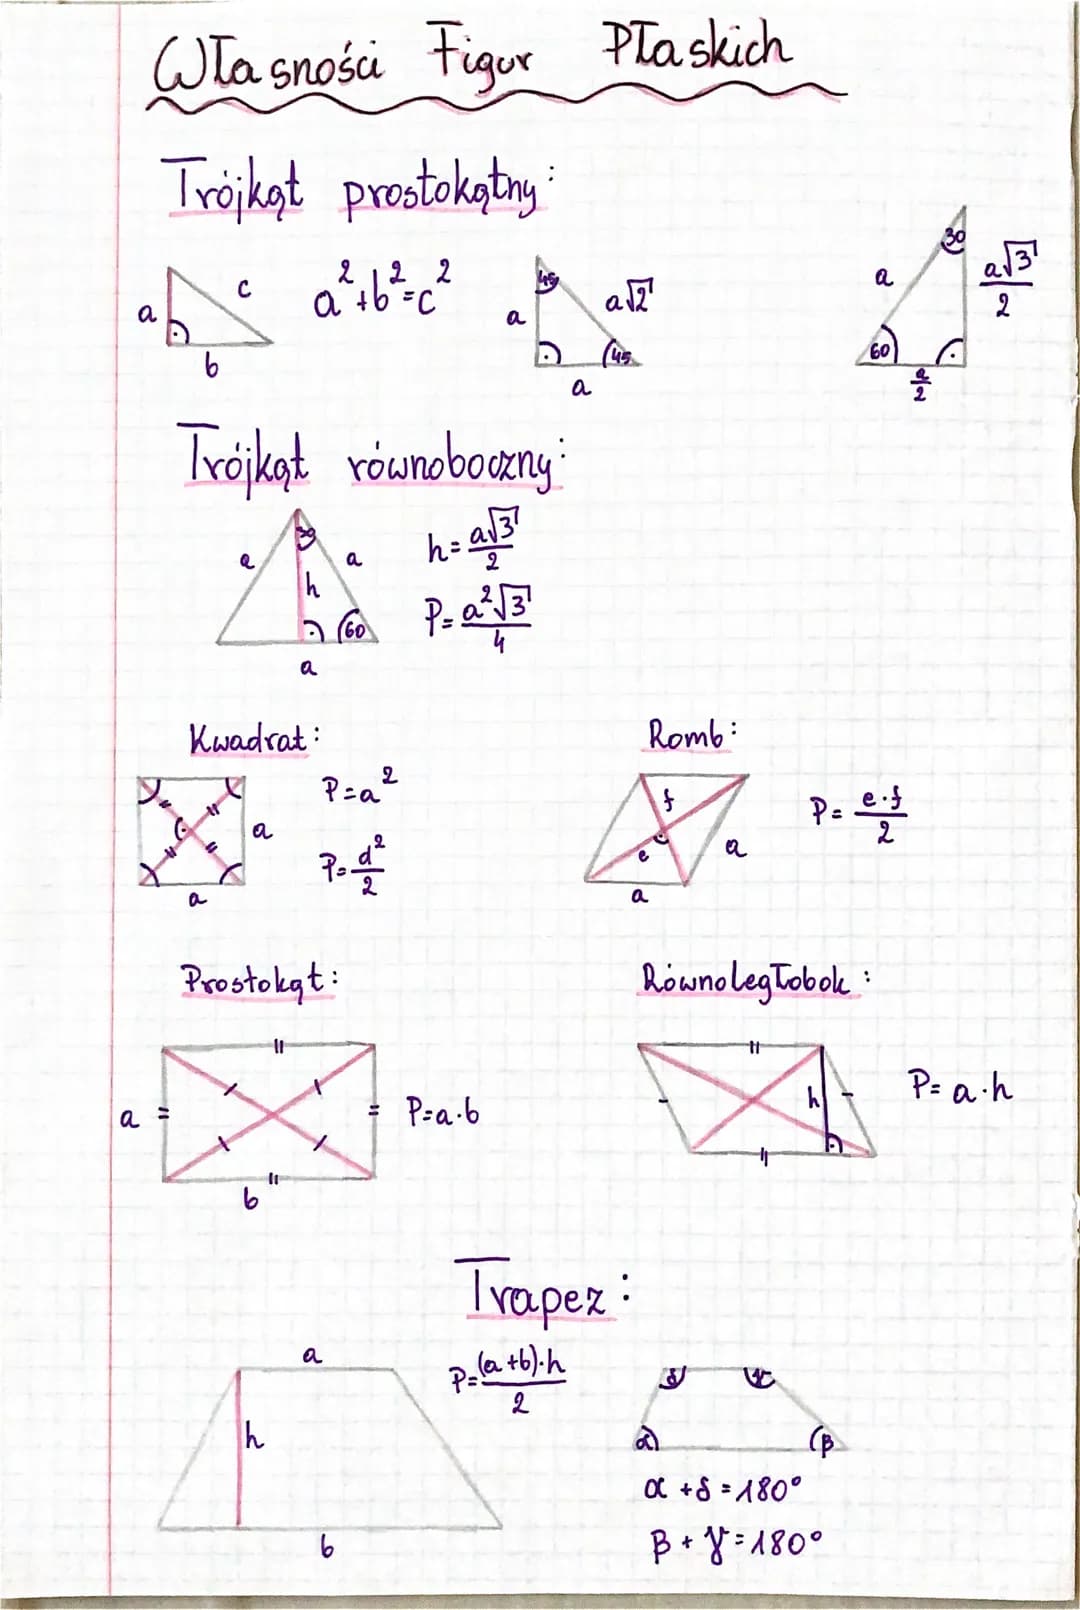 Własności Figur Płaskich
Trójkąt prostokątny:
a
b
c
a²+b²=c²
45
a
a√2
45
a
30
a
a√3/2
60
a/2
Trójkąt równoboczny:
30
a
a
h
60
a
h=a√3/2
P=a²√3/4
Kwadrat:
a
a
P=a²
P=d²/2
Romb:
f
e
a
a
P=e·f/2
Prostokąt:
a
b
P=a·b
Równoległobok:
h
P=a·h
Trapez:
a
h
b
P=(a+b)·h/2
δ γ
α β
α+δ=180°
β+γ=180°